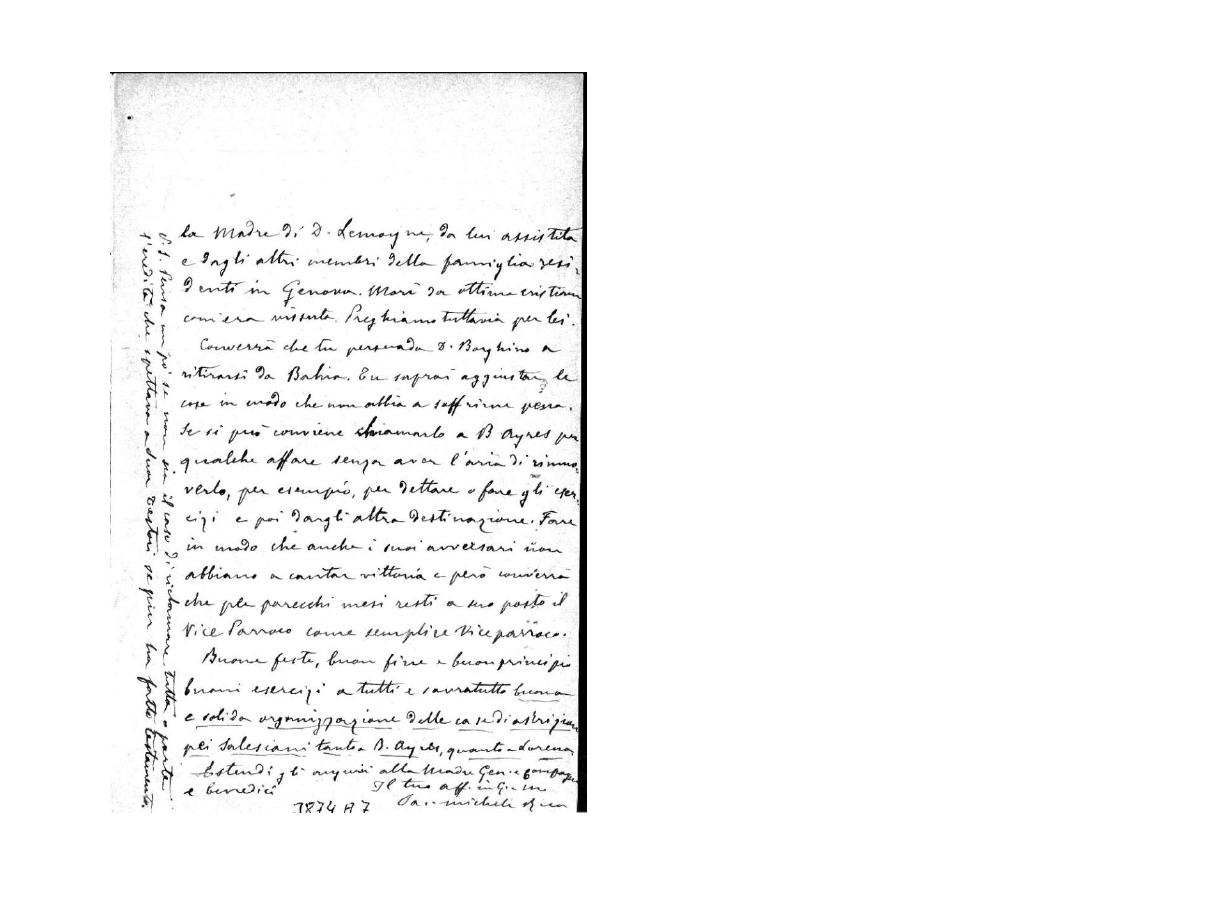 la Madre di D. Lemoyne, da lui assistita
e dagli altri membri della famiglia resi-
denti in Genova. Morì da ottima cristiana
com'era vissuta. Preghiamo tuttavia per lei.
Converrà che tu persuada D. Borghino a
ritirarsi da Bahia. Tu saprai aggiustar le
cose in modo che non abbia a soffrirne pena.
Se si può conviene chiamarlo a B Ayres per
qualche affare senza aver l'aria di rimuo-
verlo, per esempio, per dettare o fare gli eser-
cizi e poi dargli altra destinazione. Fare
in modo che anche i suoi avversari non
abbiano a cantar vittoria e però converrà
che per parecchi mesi resti a suo posto il
Vice Parroco come semplice Vice parroco.
Buone feste, buon fine e buon principio
buoni esercizi a tutti e sovratutto buona
e solida organizzazione delle case di
pei Salesiani tanto a B. Ayres, quanto a Lorena
Estendi gli auguri alla Madre Gen. e
e benedici
Il tuo aff. in G. e M.
Sac. Michele Rua
3874 A 7
P.S. Pensa un po' se non sia il caso di richiamare tutta o parte
l'eredità che spettava a Suor se pur ha fatto testamento.